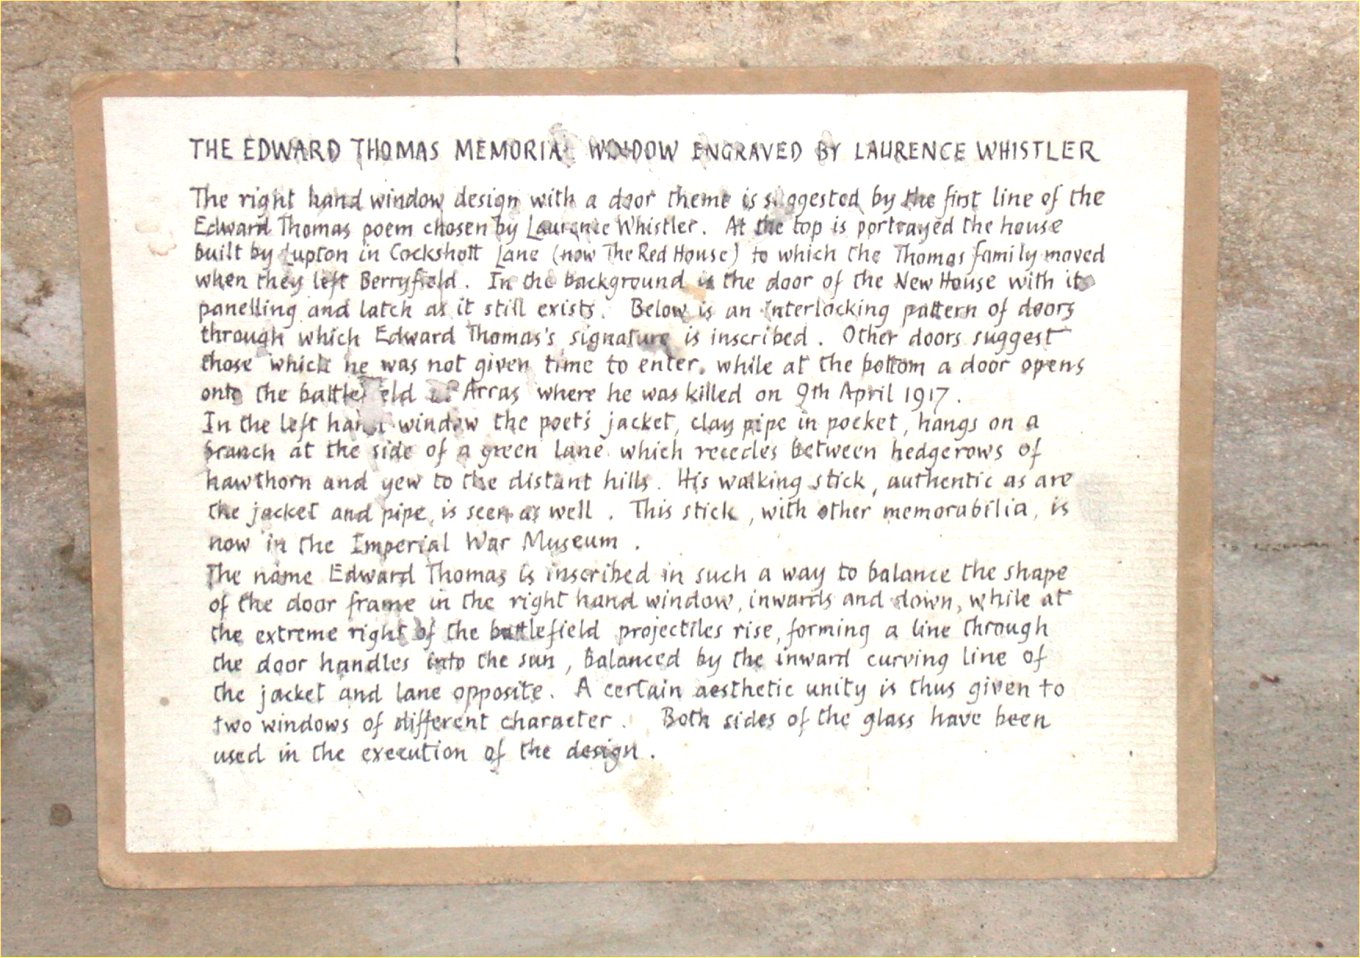 THE EDWARD THOMAS MEMORIAL WINDOW ENGRAVED BY LAURENCE WHISTLER
The right hand window design with a door theme is suggested by the first line of the
Edward Thomas poem chosen by Laurence Whistler. At the top is portrayed the house
built by Lupton in Cockshott Lane (now The Red House) to which the Thomas family moved
when they left Berryfield. In the background is the door of the New House with its
panelling and latch as it still exists. Below is an interlocking pattern of doors
through which Edward Thomas's signature is inscribed. Other doors suggest
those which he was not given time to enter, while at the bottom a door opens
onto the battlefield of Arras where he was killed on 9th April 1917.
In the left hand window the poet's jacket, clay pipe in pocket, hangs on a
branch at the side of a green lane which recedes between hedgerows of
hawthorn and yew to the distant hills. His walking stick, authentic as are
the jacket and pipe, is seen as well. This stick, with other memorabilia, is
now in the Imperial War Museum.
The name Edward Thomas is inscribed in such a way to balance the shape
of the door frame in the right hand window, inwards and down, while at
the extreme right of the battlefield projectiles rise, forming a line through
the door handles into the sun, balanced by the inward curving line of
the jacket and lane opposite. A certain aesthetic unity is thus given to
two windows of different character. Both sides of the glass have been
used in the execution of the design.